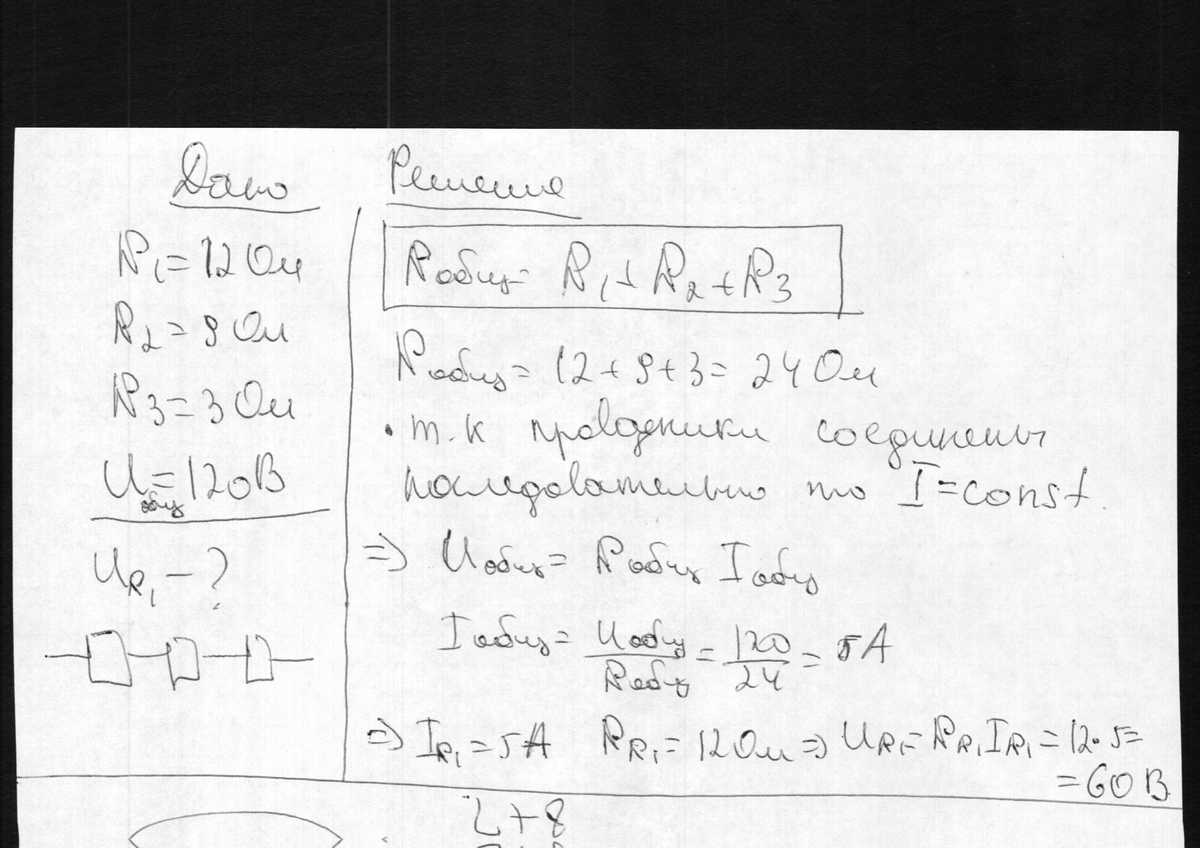 Дано
R₁ = 12 Ом
R₂ = 9 Ом
R₃ = 3 Ом
U общ = 120 В
U_R₁ – ?
Решение
R общ = R₁ + R₂ + R₃
R общ = 12 + 9 + 3 = 24 Ом
• т.к проводники соединены
последовательно то I = const.
=> U общ = R общ I общ
I общ = U общ / R общ = 120 / 24 = 5 А
=> I_R₁ = 5 А R_R₁ = 12 Ом => U_R₁ = R_R₁ I_R₁ = 12 · 5 =
= 60 В
2 + 8